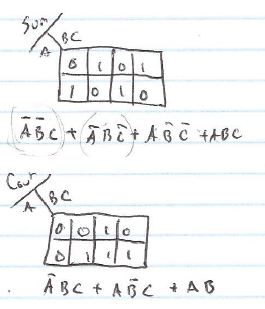 Sum
BC
A
0 1 0 1
1 0 1 0
(A̅ B̅ C) + (A̅ B C̅) + A B̅ C̅ + ABC
Cout
BC
A
0 0 1 0
0 1 1 1
A̅ B C + A B̅ C + A B